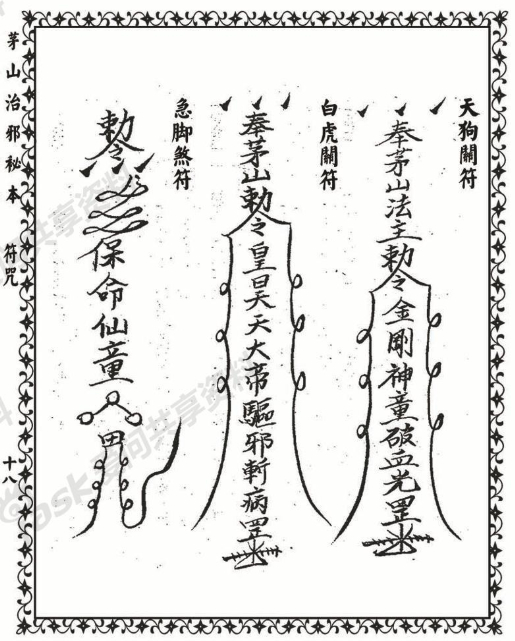 天狗關符
奉茅山法主勅令金剛神童破血光罡
白虎關符
奉茅山勅令皇昊天大帝驅邪斬病罡
急脚煞符
勅令保命仙童
茅山治邪秘本 符咒 十八
共享资料